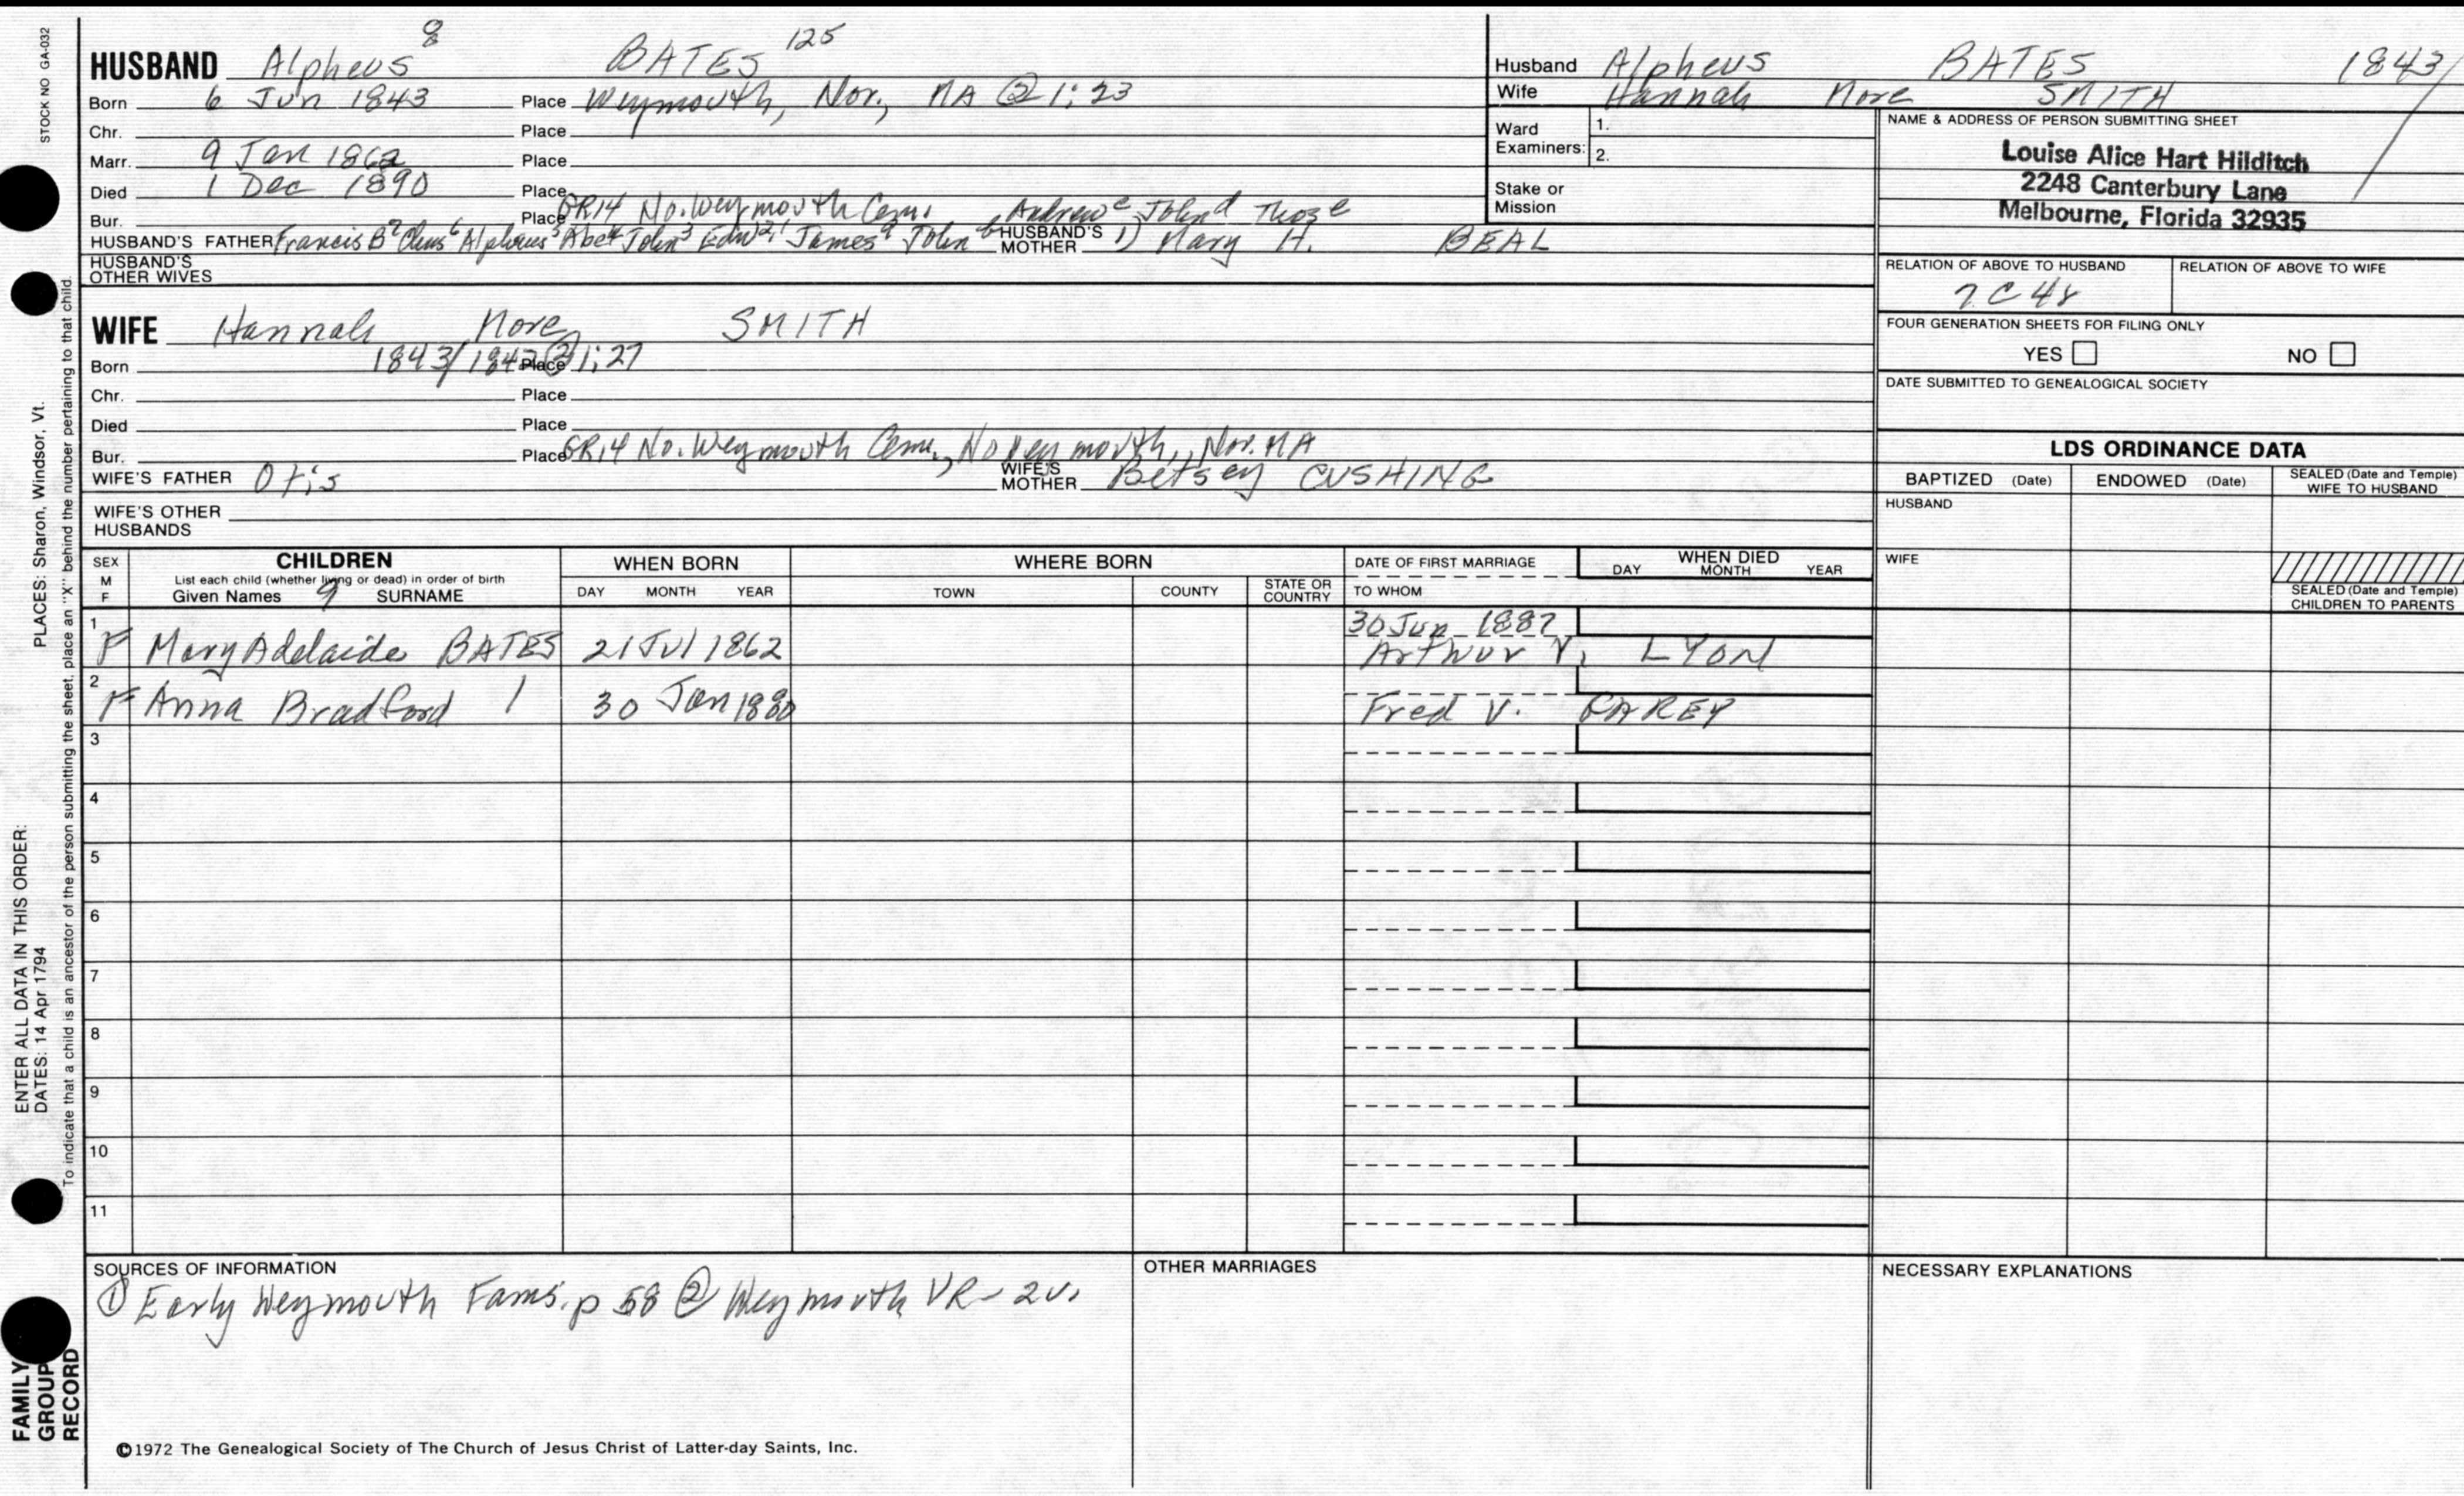 STOCK NO GA-032
HUSBAND Alpheus 8 BATES 125
Born 6 Jun 1843 Place Weymouth, Nor., MA @ 1:23
Chr. Place
Marr. 9 Jan 1862 Place
Died 1 Dec 1890 Place
Bur. Place GR14 No. Weymouth Cem. Andrew c John d Thos e
HUSBAND'S FATHER Francis B 7 6 Alpheus 5 Abel 4 John 3 Edw 2, 1 James a John b HUSBAND'S MOTHER 1) Mary H. BEAL
HUSBAND'S OTHER WIVES
Husband Alpheus BATES 1843/
Wife Hannah More SMITH
Ward Examiners: 1.
2.
Stake or Mission
NAME & ADDRESS OF PERSON SUBMITTING SHEET
Louise Alice Hart Hilditch
2248 Canterbury Lane
Melbourne, Florida 32935
RELATION OF ABOVE TO HUSBAND RELATION OF ABOVE TO WIFE
7C4r
FOUR GENERATION SHEETS FOR FILING ONLY
YES NO
DATE SUBMITTED TO GENEALOGICAL SOCIETY
WIFE Hannah More SMITH
Born 1843/1842 Place @ 1:27
Chr. Place
Died Place
Bur. Place GR14 No. Weymouth Cem., No Weymouth, Nor. MA
WIFE'S FATHER Otis WIFE'S MOTHER Betsey CUSHING
WIFE'S OTHER HUSBANDS
LDS ORDINANCE DATA
BAPTIZED (Date) ENDOWED (Date) SEALED (Date and Temple) WIFE TO HUSBAND
HUSBAND
WIFE
SEALED (Date and Temple) CHILDREN TO PARENTS
SEX M F
CHILDREN
List each child (whether living or dead) in order of birth
Given Names 9 SURNAME
WHEN BORN
DAY MONTH YEAR
WHERE BORN
TOWN COUNTY STATE OR COUNTRY
DATE OF FIRST MARRIAGE
TO WHOM
WHEN DIED
DAY MONTH YEAR
1 30 Jun 1887
F Mary Adelaide BATES 21 Jul 1862 Arthur V. LYON
2
F Anna Bradford / 30 Jan 1880 Fred V. CAREY
3
4
5
6
7
8
9
10
11
SOURCES OF INFORMATION
① Early Weymouth Fams. p 58 ② Weymouth VR - 2v.
OTHER MARRIAGES
NECESSARY EXPLANATIONS
©1972 The Genealogical Society of The Church of Jesus Christ of Latter-day Saints, Inc.
FAMILY GROUP RECORD
ENTER ALL DATA IN THIS ORDER:
DATES: 14 Apr 1794 PLACES: Sharon, Windsor, Vt.
To indicate that a child is an ancestor of the person submitting the sheet, place an "X" behind the number pertaining to that child.